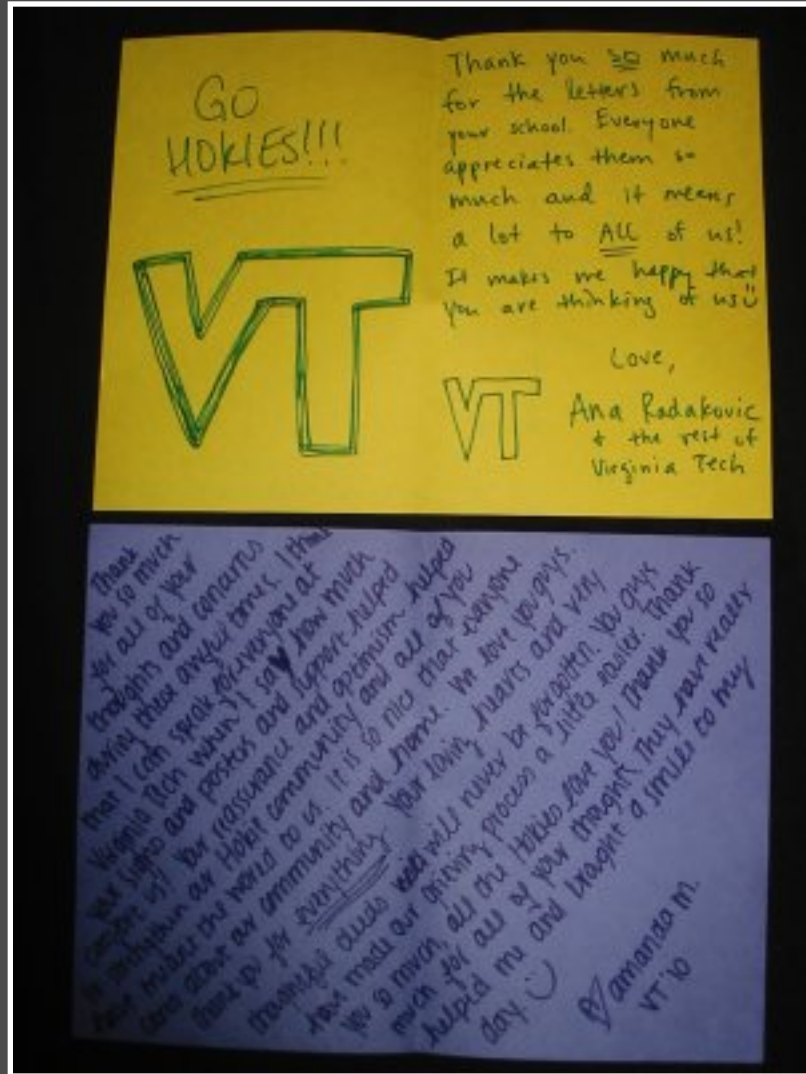 GO
HOKIES!!!
VT
Thank you so much
for the letters from
your school. Everyone
appreciates them so
much and it means
a lot to ALL of us!
It makes me happy that
you are thinking of us
Love,
VT
Ana Radakovic
+ the rest of
Virginia Tech
Thank
you so much
for all of your
thoughts and concerns
during these awful times. I think
that I can speak for everyone at
Virginia Tech when I say how much
your signs and posters and support helped
comfort us! Your reassurance and optimism helped
our Hokie community and all of you
have meant the world to us. It is so nice that everyone
cares about our community and home. We love you guys.
Thank you for everything. Your loving hearts and very
thoughtful deeds will never be forgotten. You guys
have made our grieving process a little easier. Thank
you so much, all the Hokies love you! Thank you so
much for all of your thoughts. They have really
helped me and brought a smile to my
day
amanda m.
VT '10